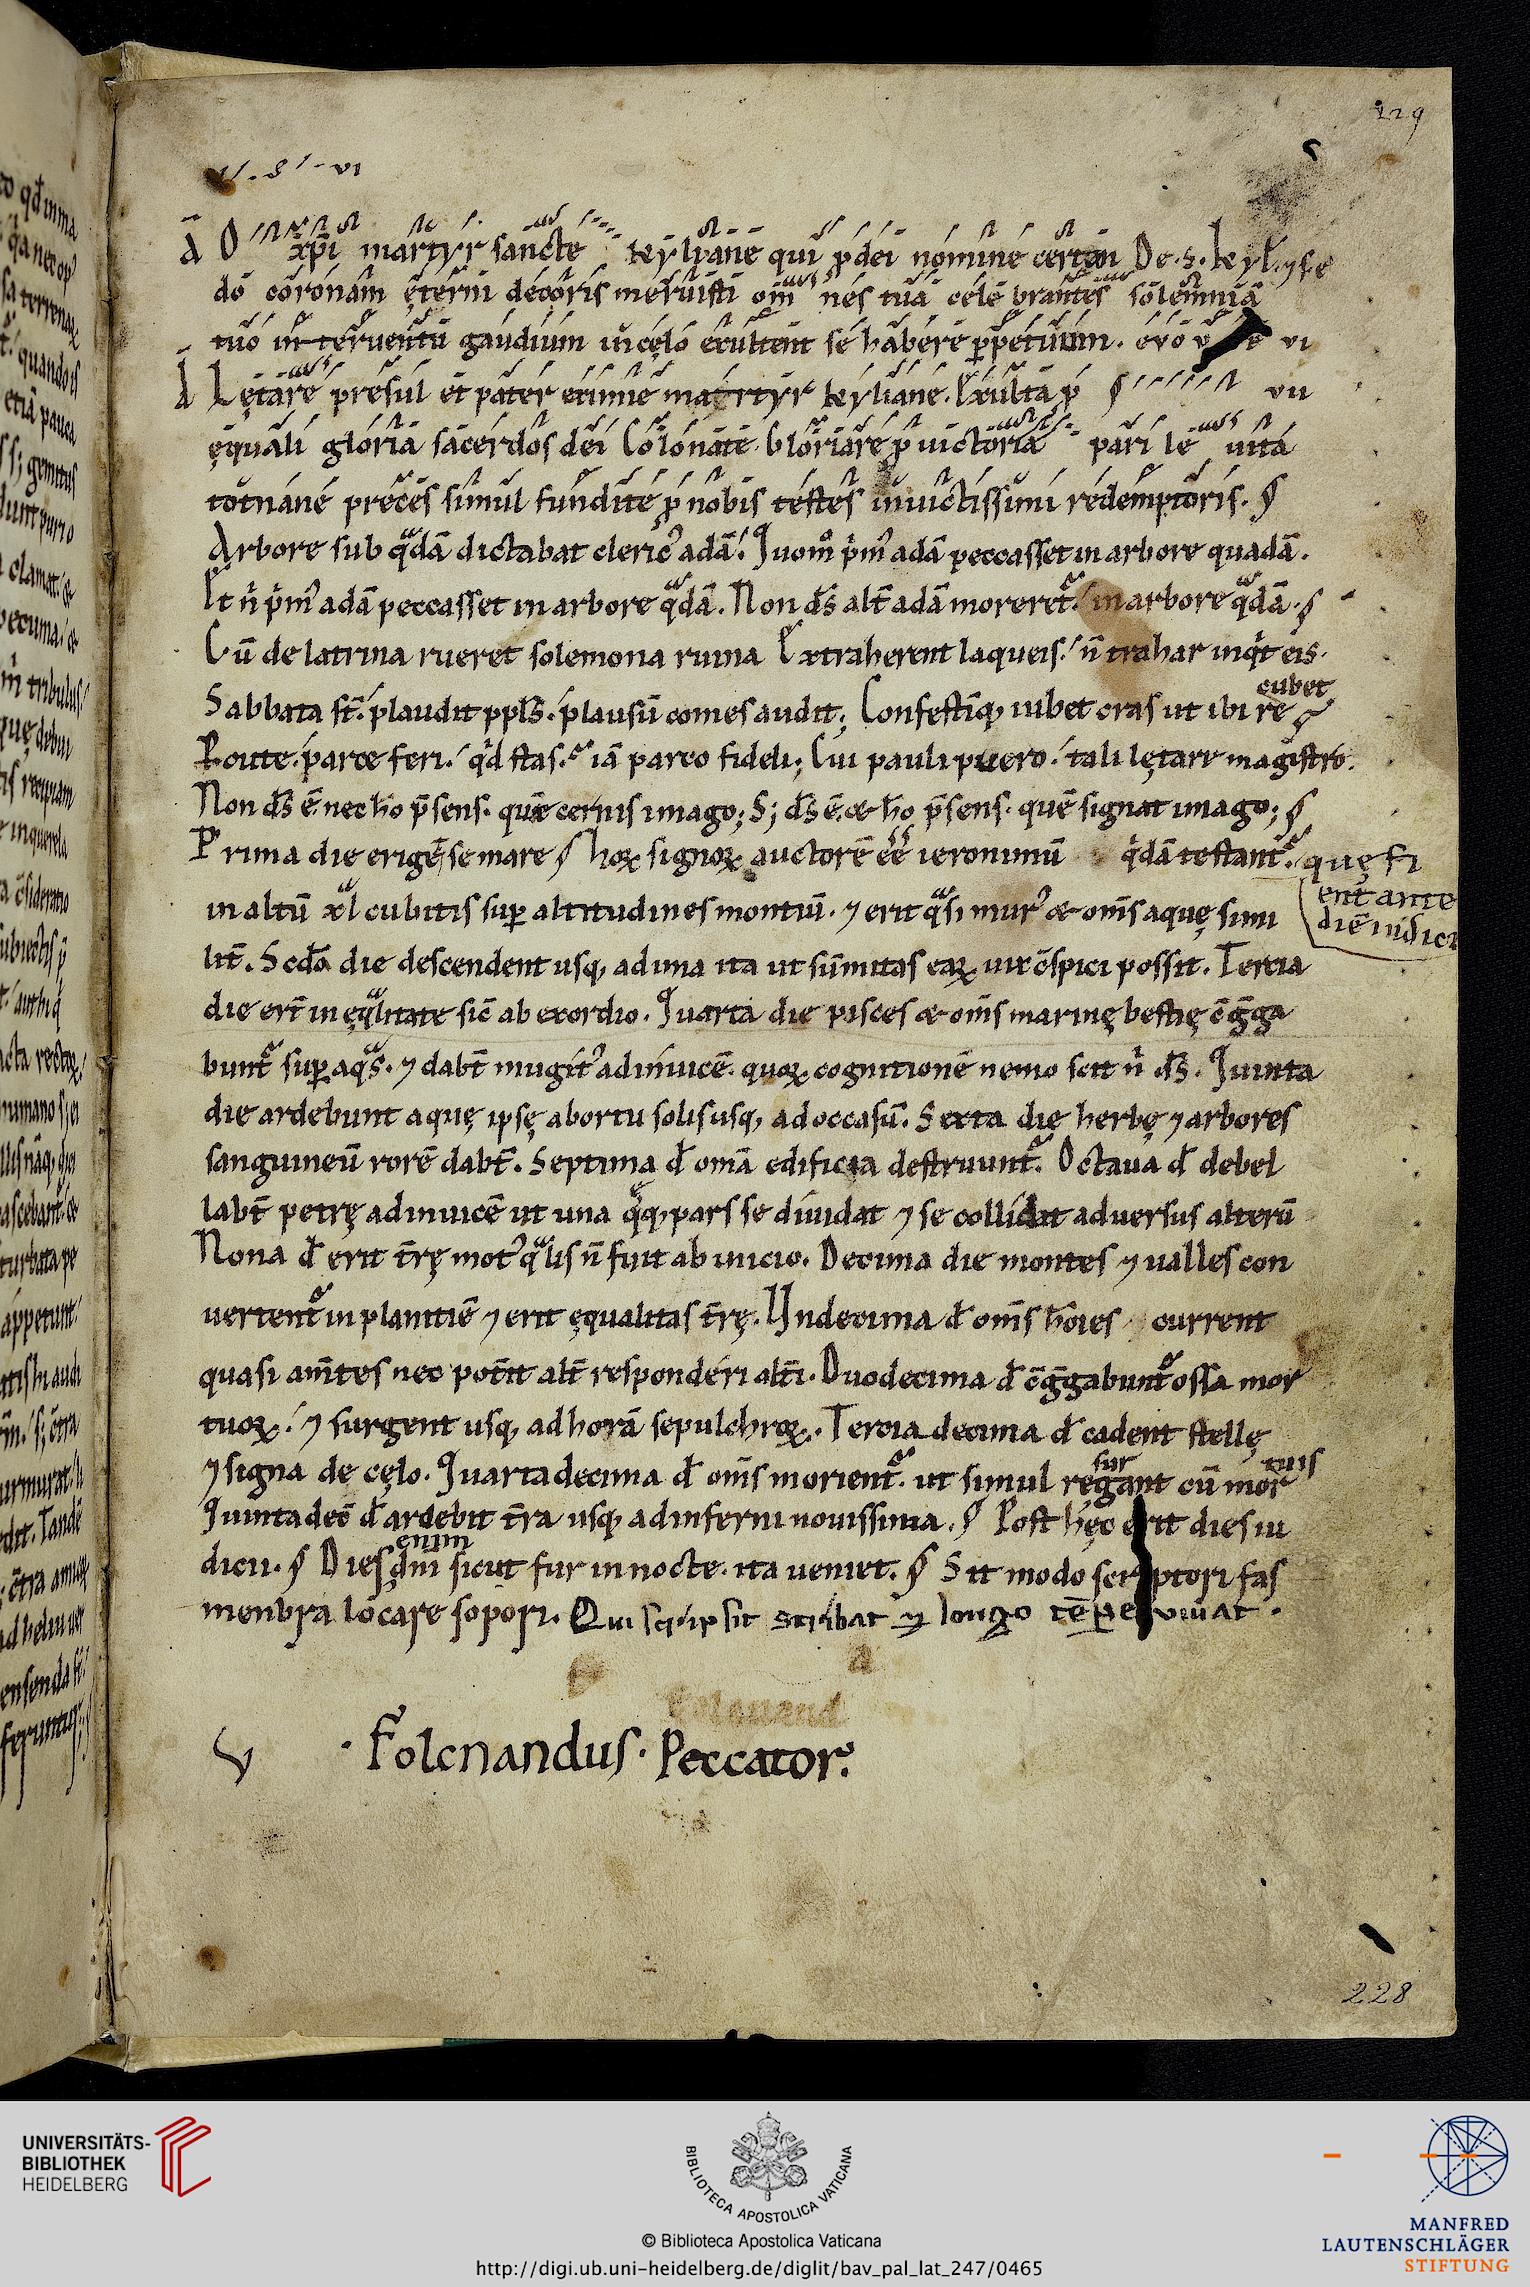 229
Ā O xp̄i martyr sancte kẏlẏane qui p dei nomine certan De·s·kẏl·⁊ s̄e
do coronam ęterni decoris meruisti om nes tua cele brantes solemnia
tuo in teruentu gaudium in cęlo exultent se habere ppetuum. evo v e vi
A Lętare presul et pater eximie martyr kẏliane. Exulta p § vii
ęquali gloria sacerdos dei Colonate. Gloriare p uictoria pari le uita
totnane preces simul fundite p nobis testes inuictissimi redemptoris. §
Arbore sub q̄dā dictabat cleric᾿ adā. Quom̊ p̄m᾿ adā peccasset in arbore quadā.
Et n̄ p̄m᾿ adā peccasset in arbore q̄dā. Non d̄s alt̄ adā moreret᾿ in arbore q̄dā. §
Cū de latrina rueret solemona ruina Extraherent laqueis. n̄ trahar inq̇t eis.
cubet
Sabbata st̄. plaudit ppl̄s. plausū comes audit; Confestīq, iubet cras ut ibi re §
Route. parce feri. q̇d stas. iā parco fideli; Cui pauli puero. tali lętare magistro.
Non d̄s ē. nec ho p̄sens. quē cernis imago; S; d̄s ē. & ho p̄sens. quē signat imago; §
Prima die erigē se mare § hoꝝ signoꝝ auctorē eē̄ ieronimū q̇dā testant᾿ quę fi
ent ante
diē iudicii
in altū xl cubitis sup altitudines montiū. ⁊ erit q̄si mur᾿ & om̄s aquę simi
lit̄. Scd̄a die descendent usq, ad ima ita ut sūmitas eaꝝ uix c̄spici possit. Tercia
die er̄t in ęq̄litate sic̄ ab exordio. Quarta die pisces & om̄s marinę bestię c̄g̅ga
bunt᾿ sup aq̄s. ⁊ dabt̄ mugit᾿ adinuicē. quoꝝ cognitionē nemo scit n̄ d̄s. Quinta
die ardebunt aquę ipsę ab ortu solis usq, ad occasū. Sexta die herbę ⁊ arbores
sanguineū rorē dabt̄. Septima đ om̄a edificia destruunt᾿. Octaua đ debel
labt̄ petrę adinuicē ut una q̄q, pars se diuidat ⁊ se collidat aduersus alterū
Nona đ erit t̄rę mot᾿ q̄lis n̄ fuit ab inicio. Decima die montes ⁊ ualles con
uertent᾿ in planitiē ⁊ erit ęqualitas t̄rę. Undecima đ om̄s hōies current
quasi am̄tes nec potit̄ alt̄ responderi alt̄i. Duodecima đ c̄g̅gabunt᾿ ossa mor
tuoꝝ. ⁊ surgent usq, ad horā sepulchroꝝ. Tercia decima đ cadent stellę
sur tuis
⁊ signa de cęlo. Quartadecima đ om̄s morient᾿. ut simul regant cū mor
Quintadec̄ đ ardebit t̄ra usq, ad inferni nouissima. § Post hęc erit dies iu
enim
dicii. § Dies dn̄i sicut fur in nocte. ita ueniet. § Sit modo scriptori fas
menbra locare sopori. Qui scripsit scribat ⁊ longo tēpe uiuat.
a
· Folcnandus · Peccator.
228
UNIVERSITÄTS-
BIBLIOTHEK
HEIDELBERG
BIBLIOTECA APOSTOLICA VATICANA
© Biblioteca Apostolica Vaticana
http://digi.ub.uni-heidelberg.de/diglit/bav_pal_lat_247/0465
MANFRED
LAUTENSCHLÄGER
STIFTUNG